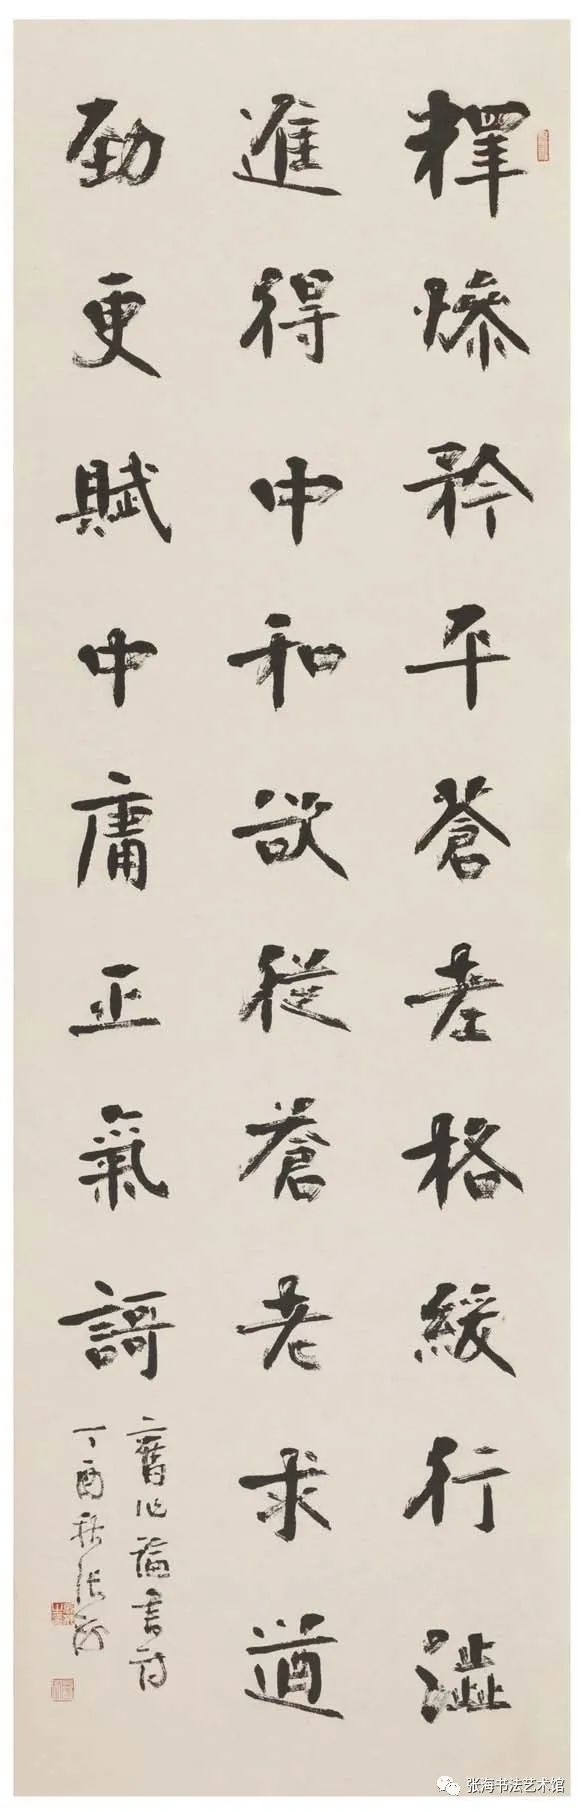 釋燥矜平蒼老格緩行澁
進得中和欲從蒼老求遒
勁更賦中庸正氣謌
舊作論書詩
丁酉秋張海
张海书法艺术馆